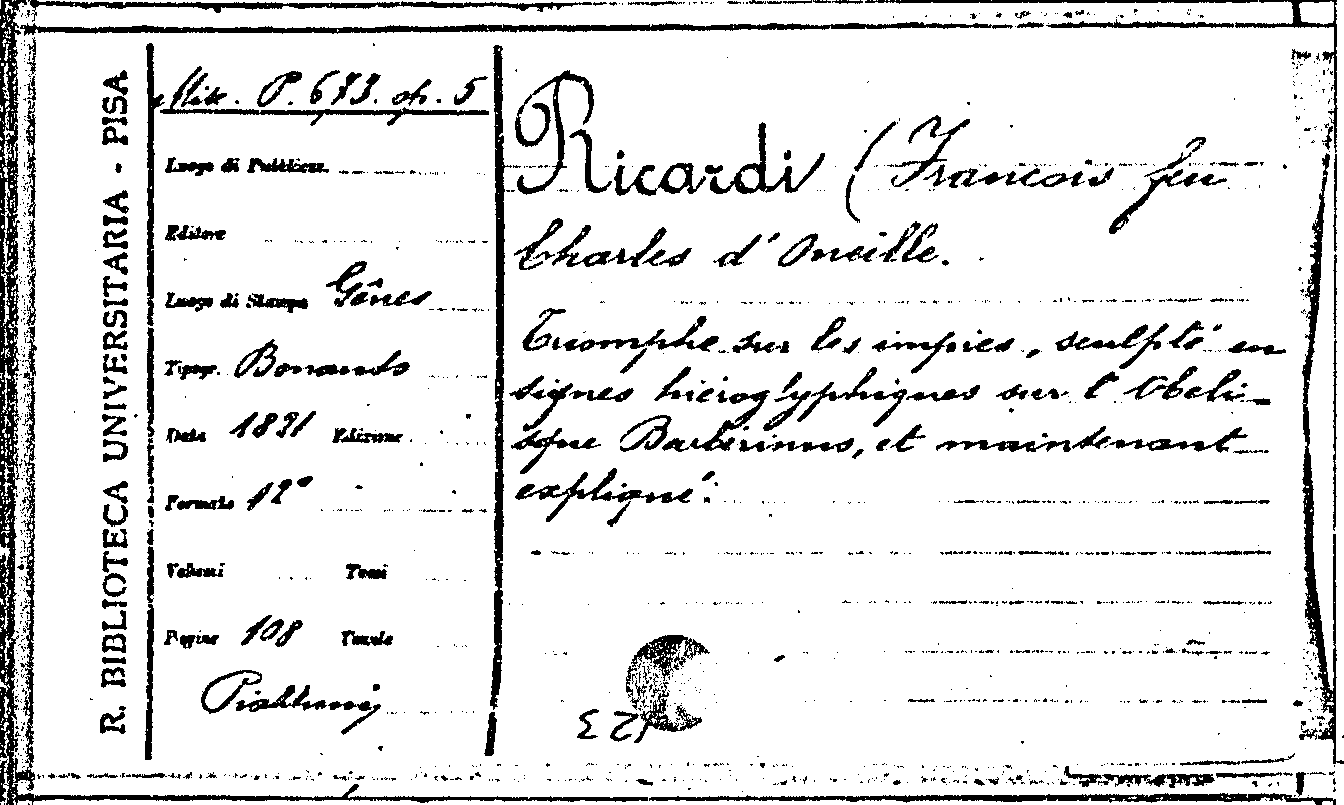 R. BIBLIOTECA UNIVERSITARIA - PISA
Misc. P. 673. op. 5
Luogo di Pubblicaz.
Editore
Luogo di Stampa Gênes
Tipogr. Bonaudo
Data 1821 Edizione
Formato 12°
Volumi Tomi
Pagine 108 Tavole
Ricardi (Francois feu
Charles d'Oneille.
Triomphe sur les impies, sculpté en
signes hiéroglyphiques sur l'Obeli-
sque Barbérinus, et maintenant
expliqué.
123